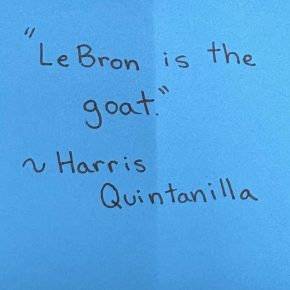 "LeBron is the
goat."
~ Harris
Quintanilla